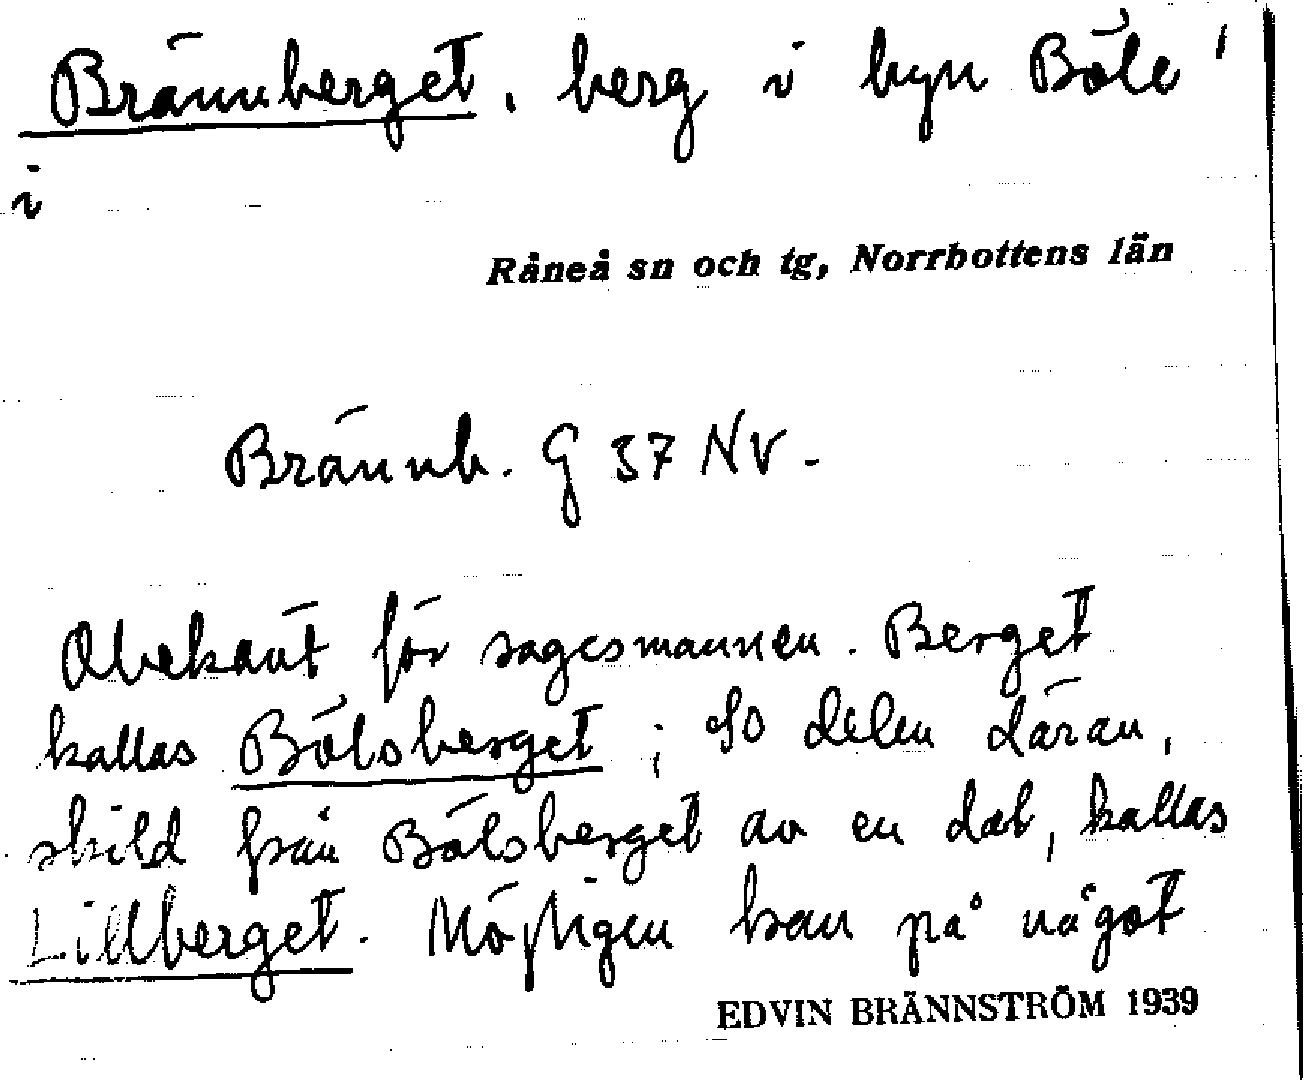 Brännberget, berg i byn Böle
i
Råneå sn och tg, Norrbottens län
Brännb. G 37 NV.
Obekant för sagesmannen. Berget
kallas Bölsberget; SO delen därav,
skild från Bölsberget av en dal, kallas
Lillberget. Möjligen kan på något
EDVIN BRÄNNSTRÖM 1939